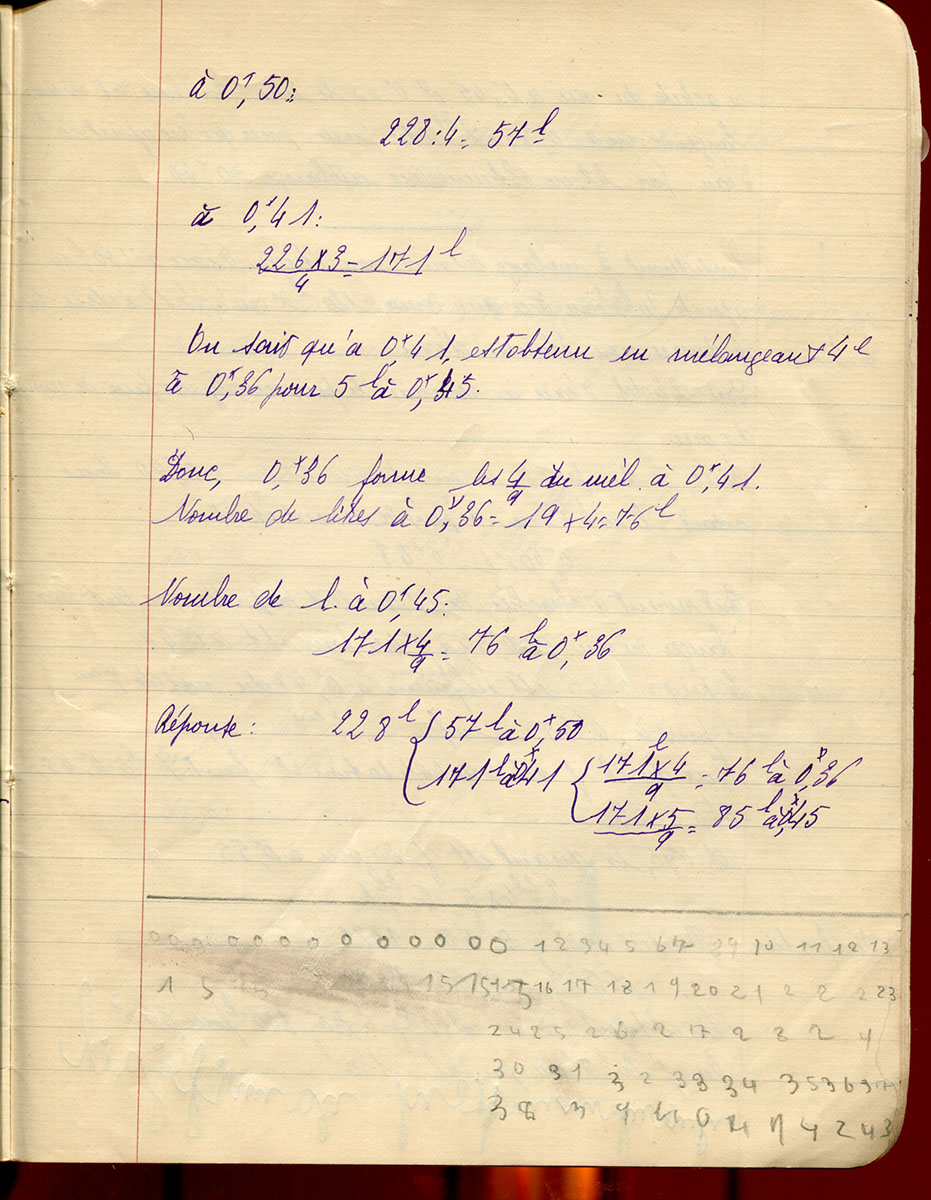 à 0ᶠ,50:
228:4= 57ˡ
à 0ᶠ,41:
226×3/4 = 171ˡ
On sait qu'à 0ᶠ,41, est obtenu en mélangeant 4ˡ
à 0ᶠ,36 pour 5ˡ à 0ᶠ,45.
Donc, 0ᶠ,36 forme les 4/9 du mél. à 0ᶠ,41.
Nombre de litres à 0ᶠ,36 = 19 × 4 = 76ˡ
Nombre de l. à 0ᶠ,45:
171×4/9 = 76ˡ à 0ᶠ,36
Réponse: 228ˡ { 57ˡ à 0ᶠ,50
171ˡ à 0ᶠ,41 { 171ˡ×4/9 = 76ˡ à 0ᶠ,36
171×5/9 = 85ˡ à 0ᶠ,45
0 0 0 0 0 0 0 0 0 0 0 0 0 1 2 3 4 5 6 7 8 9 10 11 12 13
1 5 15 15 17 5 16 17 18 19 20 21 2 2 2 23
24 25 2 6 2 7 2 8 2 9
30 31 3 2 33 34 35 36 37
38 3 9 4 0 4 1 4 2 43